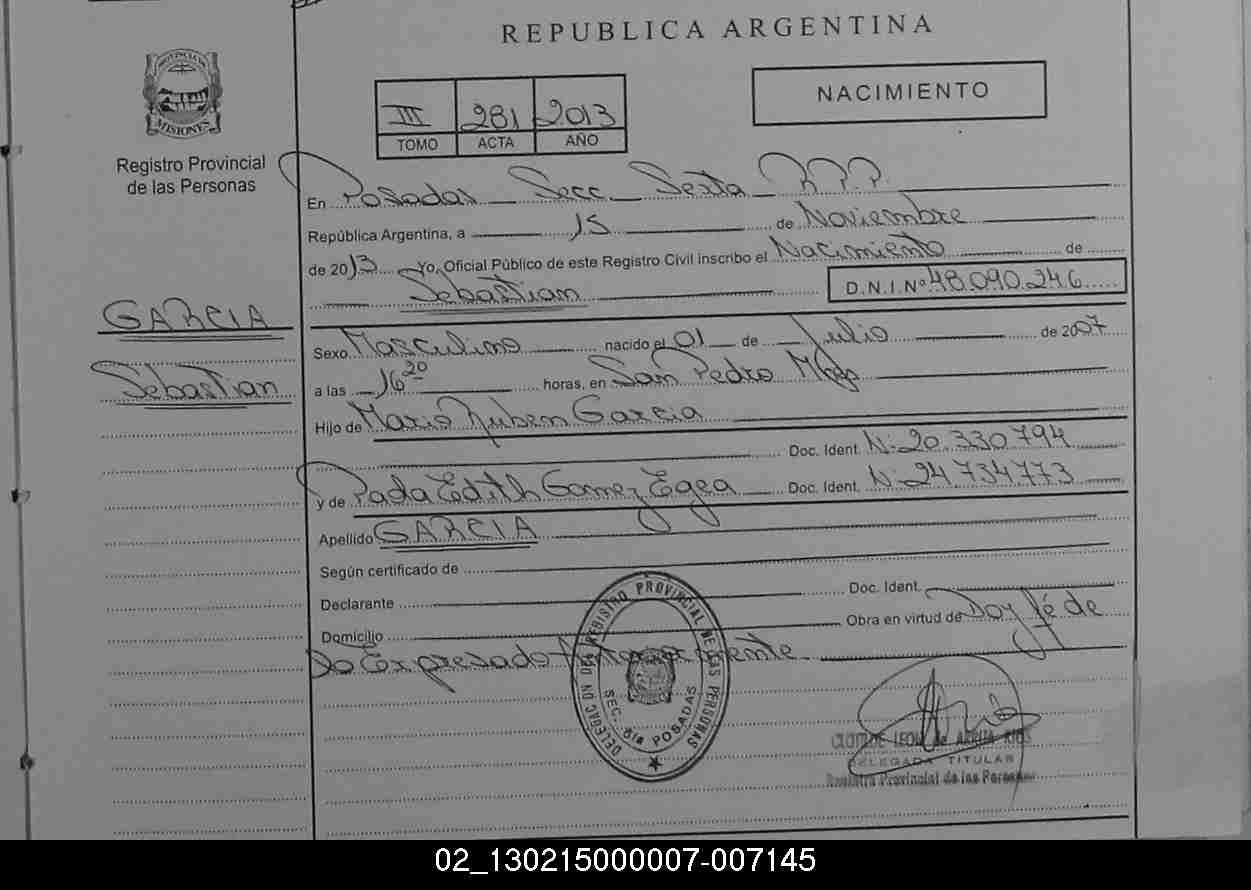 REPUBLICA ARGENTINA
PROVINCIA DE
MISIONES
Registro Provincial
de las Personas
III 281 2013
TOMO ACTA AÑO
NACIMIENTO
En Posadas Secc. Sexta R.P.P.
República Argentina, a 15 de Noviembre
de 2013 yo, Oficial Público de este Registro Civil inscribo el Nacimiento de
Sebastian D.N.I.Nº 48.090.246
GARCIA
Sebastian
Sexo Masculino nacido el 01 de Julio de 2007
a las 16 20 horas, en San Pedro Mnes
Hijo de Mario Ruben Garcia
Doc. Ident. N: 20.330.794
y de Edith Gomez Egea Doc. Ident. N: 24.734.773
Apellido GARCIA
Según certificado de
Declarante Doc. Ident.
Domicilio Obra en virtud de Doy fé de
Lo Expresado Anteriormente
DELEGACION DEL REGISTRO PROVINCIAL DE LAS PERSONAS
SEC. 6ta POSADAS
CLOTILDE LEON de
DELEGADA TITULAR
Registro Provincial de las Personas
02_130215000007-007145